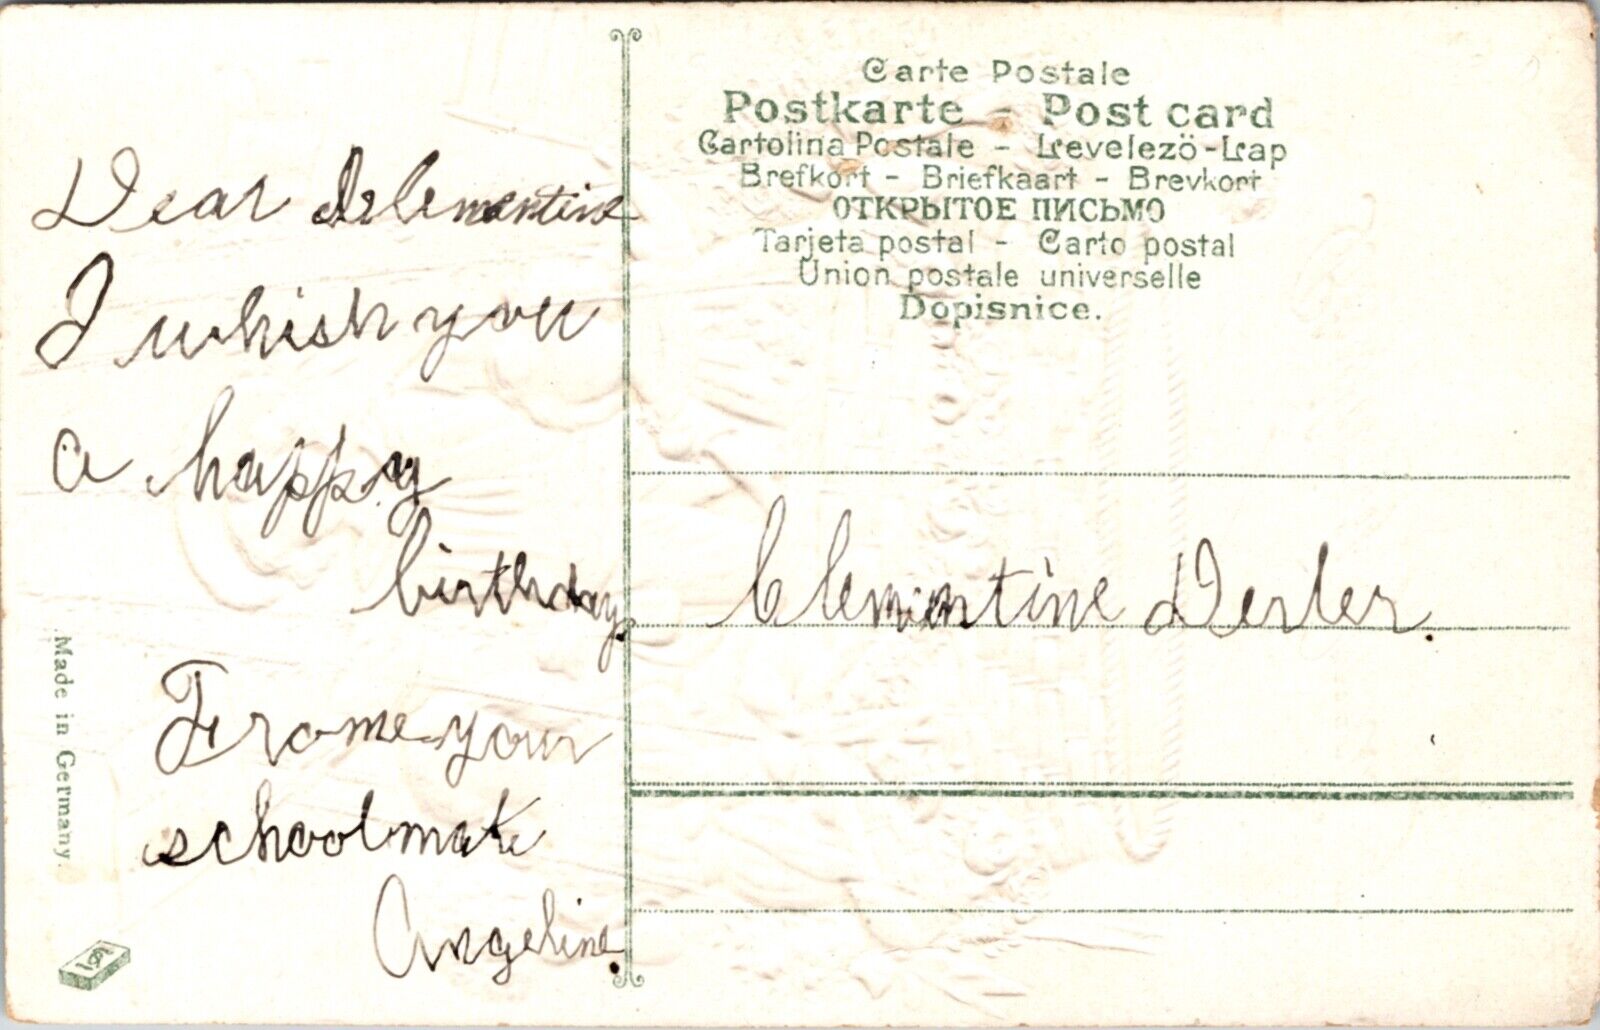 Carte Postale
Postkarte - Post card
Cartolina Postale - Levelezö-Lap
Brefkort - Briefkaart - Brevkort
ОТКРЫТОЕ ПИСЬМО
Tarjeta postal - Carto postal
Union postale universelle
Dopisnice.
Dear Clementine
I whish you
a happy
birthday.
Frome your
schoolmate
Angeline.
Clementine Derler.
Made in Germany.